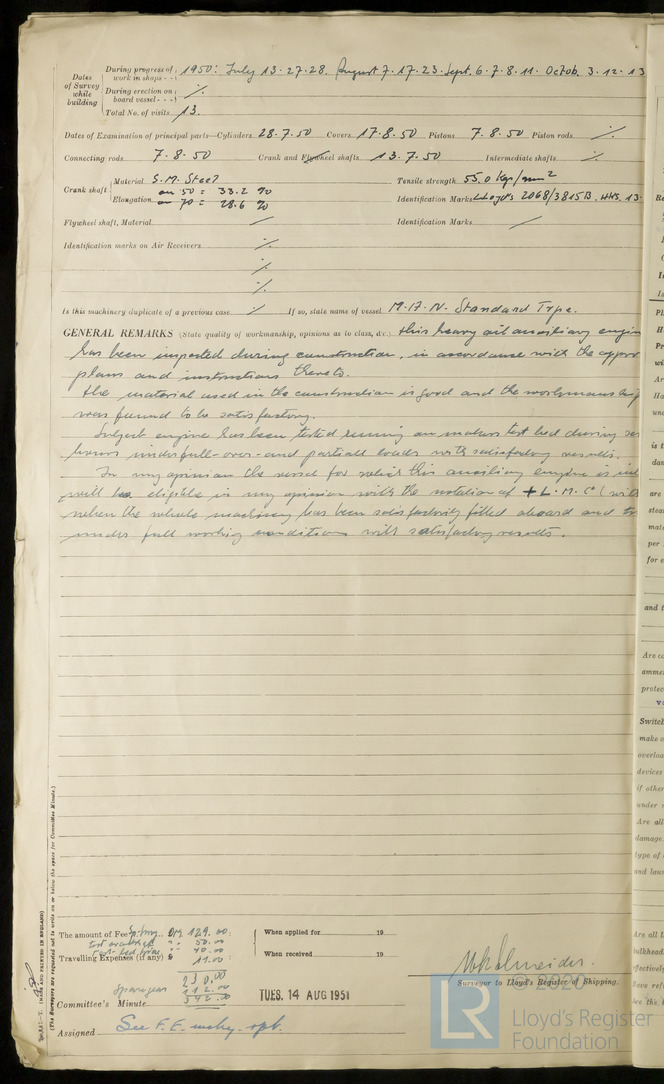 Dates of Survey while building
During progress of work in shops - - 1950: July 13.27.28. August 7.17.23. Sept. 6.7.8.11. Octob. 3.12.13
During erection on board vessel - - - ·/.
Total No. of visits 13.
Dates of Examination of principal parts—Cylinders 28.7.50 Covers 17.8.50 Pistons 7.8.50 Piston rods ·/.
Connecting rods 7.8.50 Crank and Flywheel shafts 13.7.50 Intermediate shafts ·/.
Crank shaft Material S.M. Steel Tensile strength 55.0 kgs/mm2
Elongation on 50 = 33.2 %
on 70 = 28.6 % Identification Marks Lloyd's 2068/3815B. WHS. 13
Flywheel shaft, Material / Identification Marks /
Identification marks on Air Receivers ·/.
·/.
·/.
·/.
Is this machinery duplicate of a previous case / If so, state name of vessel M.A.N. Standard Type.
GENERAL REMARKS (State quality of workmanship, opinions as to class, &c.) this heavy oil auxiliary engin
has been inspected during construction, in accordance with the approv
plans and instructions thereto.
the material used in the construction is good and the workmanship
was found to be satisfactory.
Subject engine has been tested running on makers test bed during
hours under full-over- and partial loades with satisfactory results.
In my opinion the vessel for which this auxiliary engine is
will be eligible in my opinion with the notation of + L.M.C. (with
when the whole machinery has been satisfactorily fitted aboard and
under full working conditions with satisfactory results.
The amount of Fee DM 129.00:
50.00
40.00
Travelling Expenses (if any) £ 11.00:
230.00
Spare gear 112.00
342.00
When applied for 19
When received 19
Surveyor to Lloyd's Register of Shipping.
Committee's Minute TUES. 14 AUG 1951
Assigned See F.E. mchy. rpt.
(MADE AND PRINTED IN ENGLAND)
(The Surveyors are requested not to write on or below the space for Committee Minute.)
© 2020
LR
Lloyd's Register
Foundation